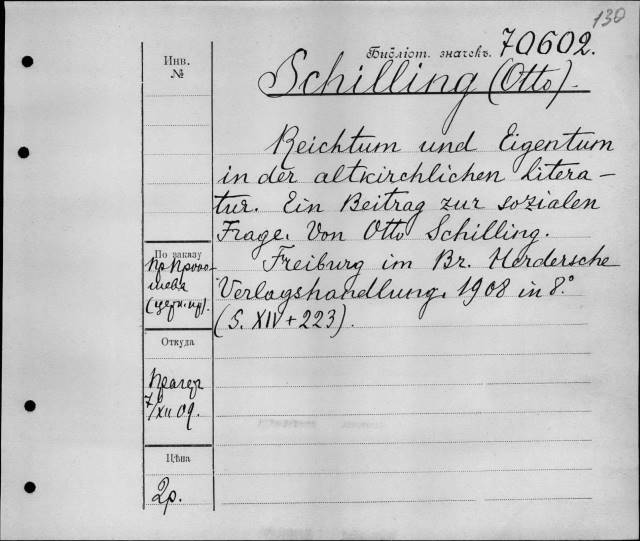 130
Библіот. значекъ. 70602.
Инв.
№
Schilling (Otto).
Reichtum und Eigentum
in der altkirchlichen Litera-
tur. Ein Beitrag zur sozialen
Frage. Von Otto Schilling.
Freiburg im Br. Herdersche
Verlagshandlung. 1908 in 8.°
(S. XIV + 223).
По заказу
Пр.
(церк. пр).
Откуда
Прагер
7/XII 09.
Цѣна
2р.